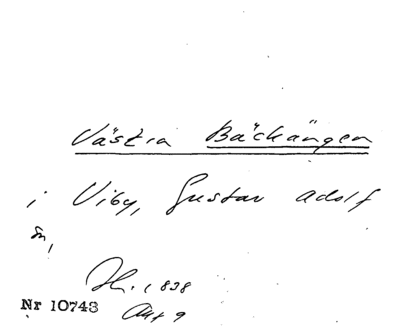 Västra Bäckängen
i Viby, Gustav Adolf
sn,
H. 1838
Nr 10743 Akt 9